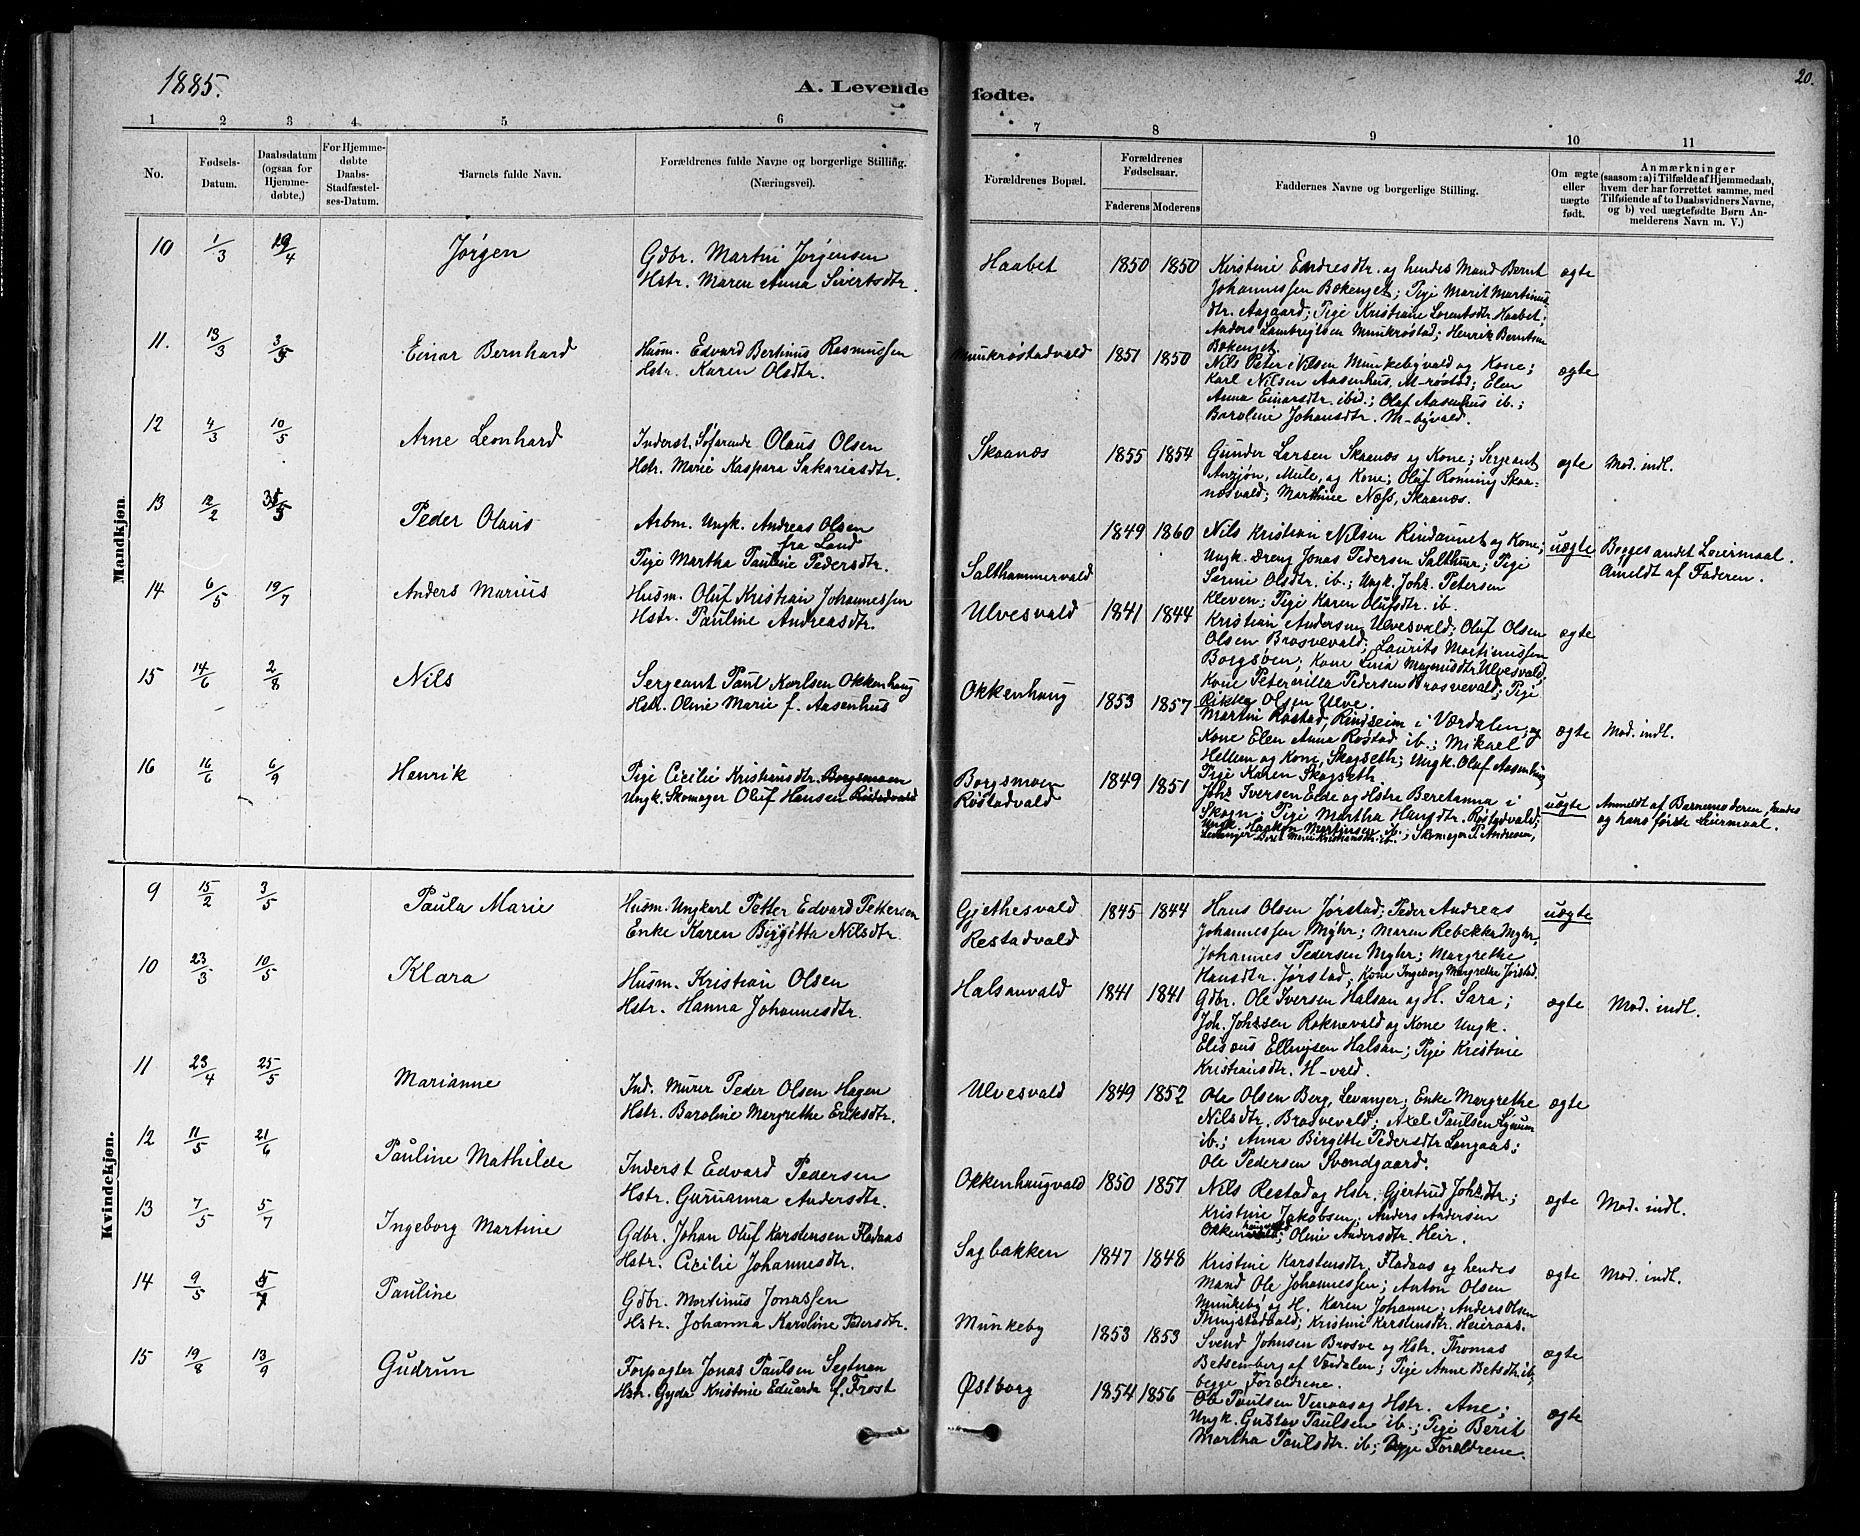 1885.
A. Levende fødte.
20.
1 2 3 4 5 6 7 8 9 10 11
No.
Fødsels-Datum.
Daabsdatum (ogsaa for Hjemmedøbte,)
For Hjemmedøbte Daabs-Stadfæstelses-Datum.
Barnets fulde Navn.
Forældrenes fulde Navne og borgerlige Stilling. (Næringsvei).
Forældrenes Bopæl.
Forældrenes Fødselsaar.
Faderens Moderens
Faddernes Navne og borgerlige Stilling.
Om ægte eller uægte født.
Anmærkninger (saasom: a) i Tilfælde af Hjemmedaab, hvem der har forrettet samme, med Tilføiende af to Daabsvidners Navne, og b) ved uægtefødte Børn Anmelderens Navn m. V.)
Mandkjøn.
10 1/3 19/4 Jørgen
Gdbr. Martin Jørgensen
Hstr. Maren Anna Sivertsdtr.
Haabet 1850 1850
Kirstine Endresdtr. og hendes Mand Bernt
Johannessen Bokenget; Pige Marit Martinus
dtr. Aagaard; Pige Kristiane Lorentsdtr. Haabet;
Anders Lambregtsen Munkrøstad; Henrik Berntsen
Bokenget.
ægte
11. 13/3 3/5 Einar Bernhard
Husm. Edvard Bertinus Rasmussen
Hstr. Karen Olsdtr.
Munkrøstadvald 1851 1850
Nils Peter Nilsen Munkebyvald og Kone;
Karl Nilsen Aasenhus, M-røstad; Elen
Anna Einarsdtr. ibid.; Olaf Aasenhus ib.;
Baroline Johansdtr. M-byvald.
ægte
12 4/3 10/5 Arne Leonhard
Inderst, Søfarende Olaus Olsen
Hstr. Marie Kaspara Sakariasdtr.
Skaanæs 1855 1854
Gunder Larsen Skaanæs og Kone; Sergeant
Anzjøn, Meile, og Kone; Oluf Rønning Skaa-
næsvald; Marthine Næss, Skaanæs.
ægte Mod. indl.
13 12/2 31/5 Peder Olaus
Arbm. Ungk. Andreas Olsen
fra Land
Pige Martha Pauline Pedersdtr.
Salthammervald
1849 1860
Nils Kristian Nilsen Rindaunet og Kone;
Ungk. Dreng Jonas Pedersen Salthmr; Pige
Sarine Olsdtr. ib.; Ungk. Johs. Petersen
Kleven; Pige Karen Olufsdtr. ib.
uægte
Begges andet Leiermaal.
Anmeldt af Faderen.
14 6/5 19/7 Anders Marius
Husm. Oluf Kristian Johannessen
Hstr. Pauline Andreasdtr.
Ulvesvald 1841 1844
Kristian Andersen Ulvesvald; Oluf Olsen
Olsen Brosvevald; Laurits Martinussen
Borgsøen; Kone Lina Magnusdtr Ulvesvald;
Kone Peternilla Pedersen Brosvevald; Pige
Rikka Olsen Ulve.
ægte
15 14/6 2/8 Nils
Sergeant Paul Karlsen Okkenhaug
Hstr. Oline Marie f. Aasenhus
Okkenhaug 1853 1857
Martin Røstad, Rindseim i Værdalen, og
Kone Elen Anna Røstad ib.; Mikael
Hellem og Kone, Skogseth; Ungk. Oluf Aasenhus;
Pige Karen Skogseth.
ægte Mod. indl.
16 16/6 6/9 Henrik
Pige Cicilie Kristiansdtr. Borgsmoen
Ungk. Skomager Oluf Hansen Røstadvald
Borgsmoen
Røstadvald
1849 1851
Johs Iversen Eide og Hstra Beretanna i
Skogn; Pige Martha Hansdtr. Røstadvald;
Ungk. Haakon Martinsen ib.; Skomager P. Andresen,
Levanger, Doret Marie Kristiansdtr. ib.
uægte
Anmeldt af Barnemoderen, hendes
og hans første Leiermaal.
Kvindekjøn.
9 15/2 3/5 Paula Marie
Husm. Ungkarl Petter Edvard Pettersen
Enke Karen Birgitta Nilsdtr.
Gjethesvald
Restadvald
1845 1844
Hans Olsen Jørstad; Peder Andreas
Johannessen Myhr; Maren Rebekka Myhr,
Johannes Pedersen Myhr; Margrethe
Hansdtr. Jørstad; Kone Ingeborg Margrethe Jørstad.
uægte
10 23/3 10/5 Klara
Husm. Kristian Olsen
Hstr. Hanna Johannesdtr.
Halsanvald 1841 1841
Gdbr. Ole Iversen Halsan og H. Sara;
Joh. Johssen Roknevald og Kone Ungk.
Elisæus Ellingsen Halsan; Pige Kristine
Kristiansdtr. H-vald.
ægte Mod. indl.
11 23/4 25/5 Marianne
Ind. Murer Peder Olsen Hagen
Hstr. Baroline Margrethe Eriksdtr.
Ulvesvald 1849 1852
Ola Olsen Berg, Levanger; Enke Margrethe
Nilsdtr. Brosvevald; Axel Paulsen Lynum
ib.; Anna Birgitte Pedersdtr Langaas;
Ole Pedersen Svendgaard.
ægte
12 11/5 21/6 Pauline Mathilde
Inderst Edvard Pedersen
Hstr. Gurianna Andersdtr.
Okkenhaugvald 1850 1857
Nils Restad og Hstr. Gjertrud Johsdtr;
Kristine Jakobsen; Anders Andersen
Okkenhaugvald; Oline Andersdtr. Heir.
ægte Mod. indl.
13 7/5 5/7 Ingeborg Martine
Gdbr. Johan Oluf Karstensen Fladaas
Hstr. Cicilie Johannesdtr.
Sagbakken 1847 1848
Kristine Karstensdtr. Fladaas og hendes
Mand Ole Johannessen; Anton Olsen
Munkeby og H. Karen Johanne; Anders Olsen
Thingstadvald; Kristine Karstensdtr. Heiraas.
ægte Mod. indl.
14 9/5 5/7 Pauline
Gdbr. Martinus Jonassen
Hstr. Johanna Karoline Pedersdtr.
Munkeby 1853 1853
Svend Johnsen Brosve og Hstr. Thomas
Betsenberg af Værdalen; Pige Anne Betsdtr. ib,
begge Forældrene.
ægte
15 19/8 13/9 Gudrun
Forpagter Jonas Paulsen Segtnan
Hstr. Gyda Kristine Eduarda f. Frost
Østborg 1854 1856
Ole Paulsen Vinaas og Hstr. Ane;
Ungk. Gustav Paulsen ib.; Pige Berit
Martha Paulsdtr. ib; Begge Forældrene.
ægte